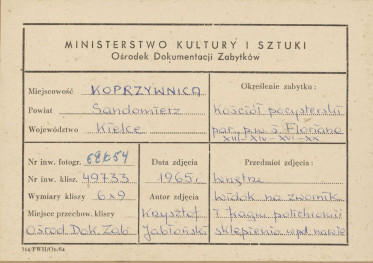 MINISTERSTWO KULTURY I SZTUKI
Ośrodek Dokumentacji Zabytków
Miejscowość KOPRZYWNICA
Powiat Sandomierz
Województwo Kielce
Określenie zabytku:
Kościół pocysterski
par. p.w. ś. Floriana
XIII-XIV-XVI-XX
Nr inw. fotogr. 68654
Nr inw. klisz. 49733
Wymiary kliszy 6x9
Miejsce przechow. kliszy
Ośrod. Dok. Zab
Data zdjęcia
1965.
Autor zdjęcia
Krzysztof
Jabłoński
Przedmiot zdjęcia:
Wnętrze
Widok na zwornik
i fragm. polichromii
sklepienia w pd. nawie